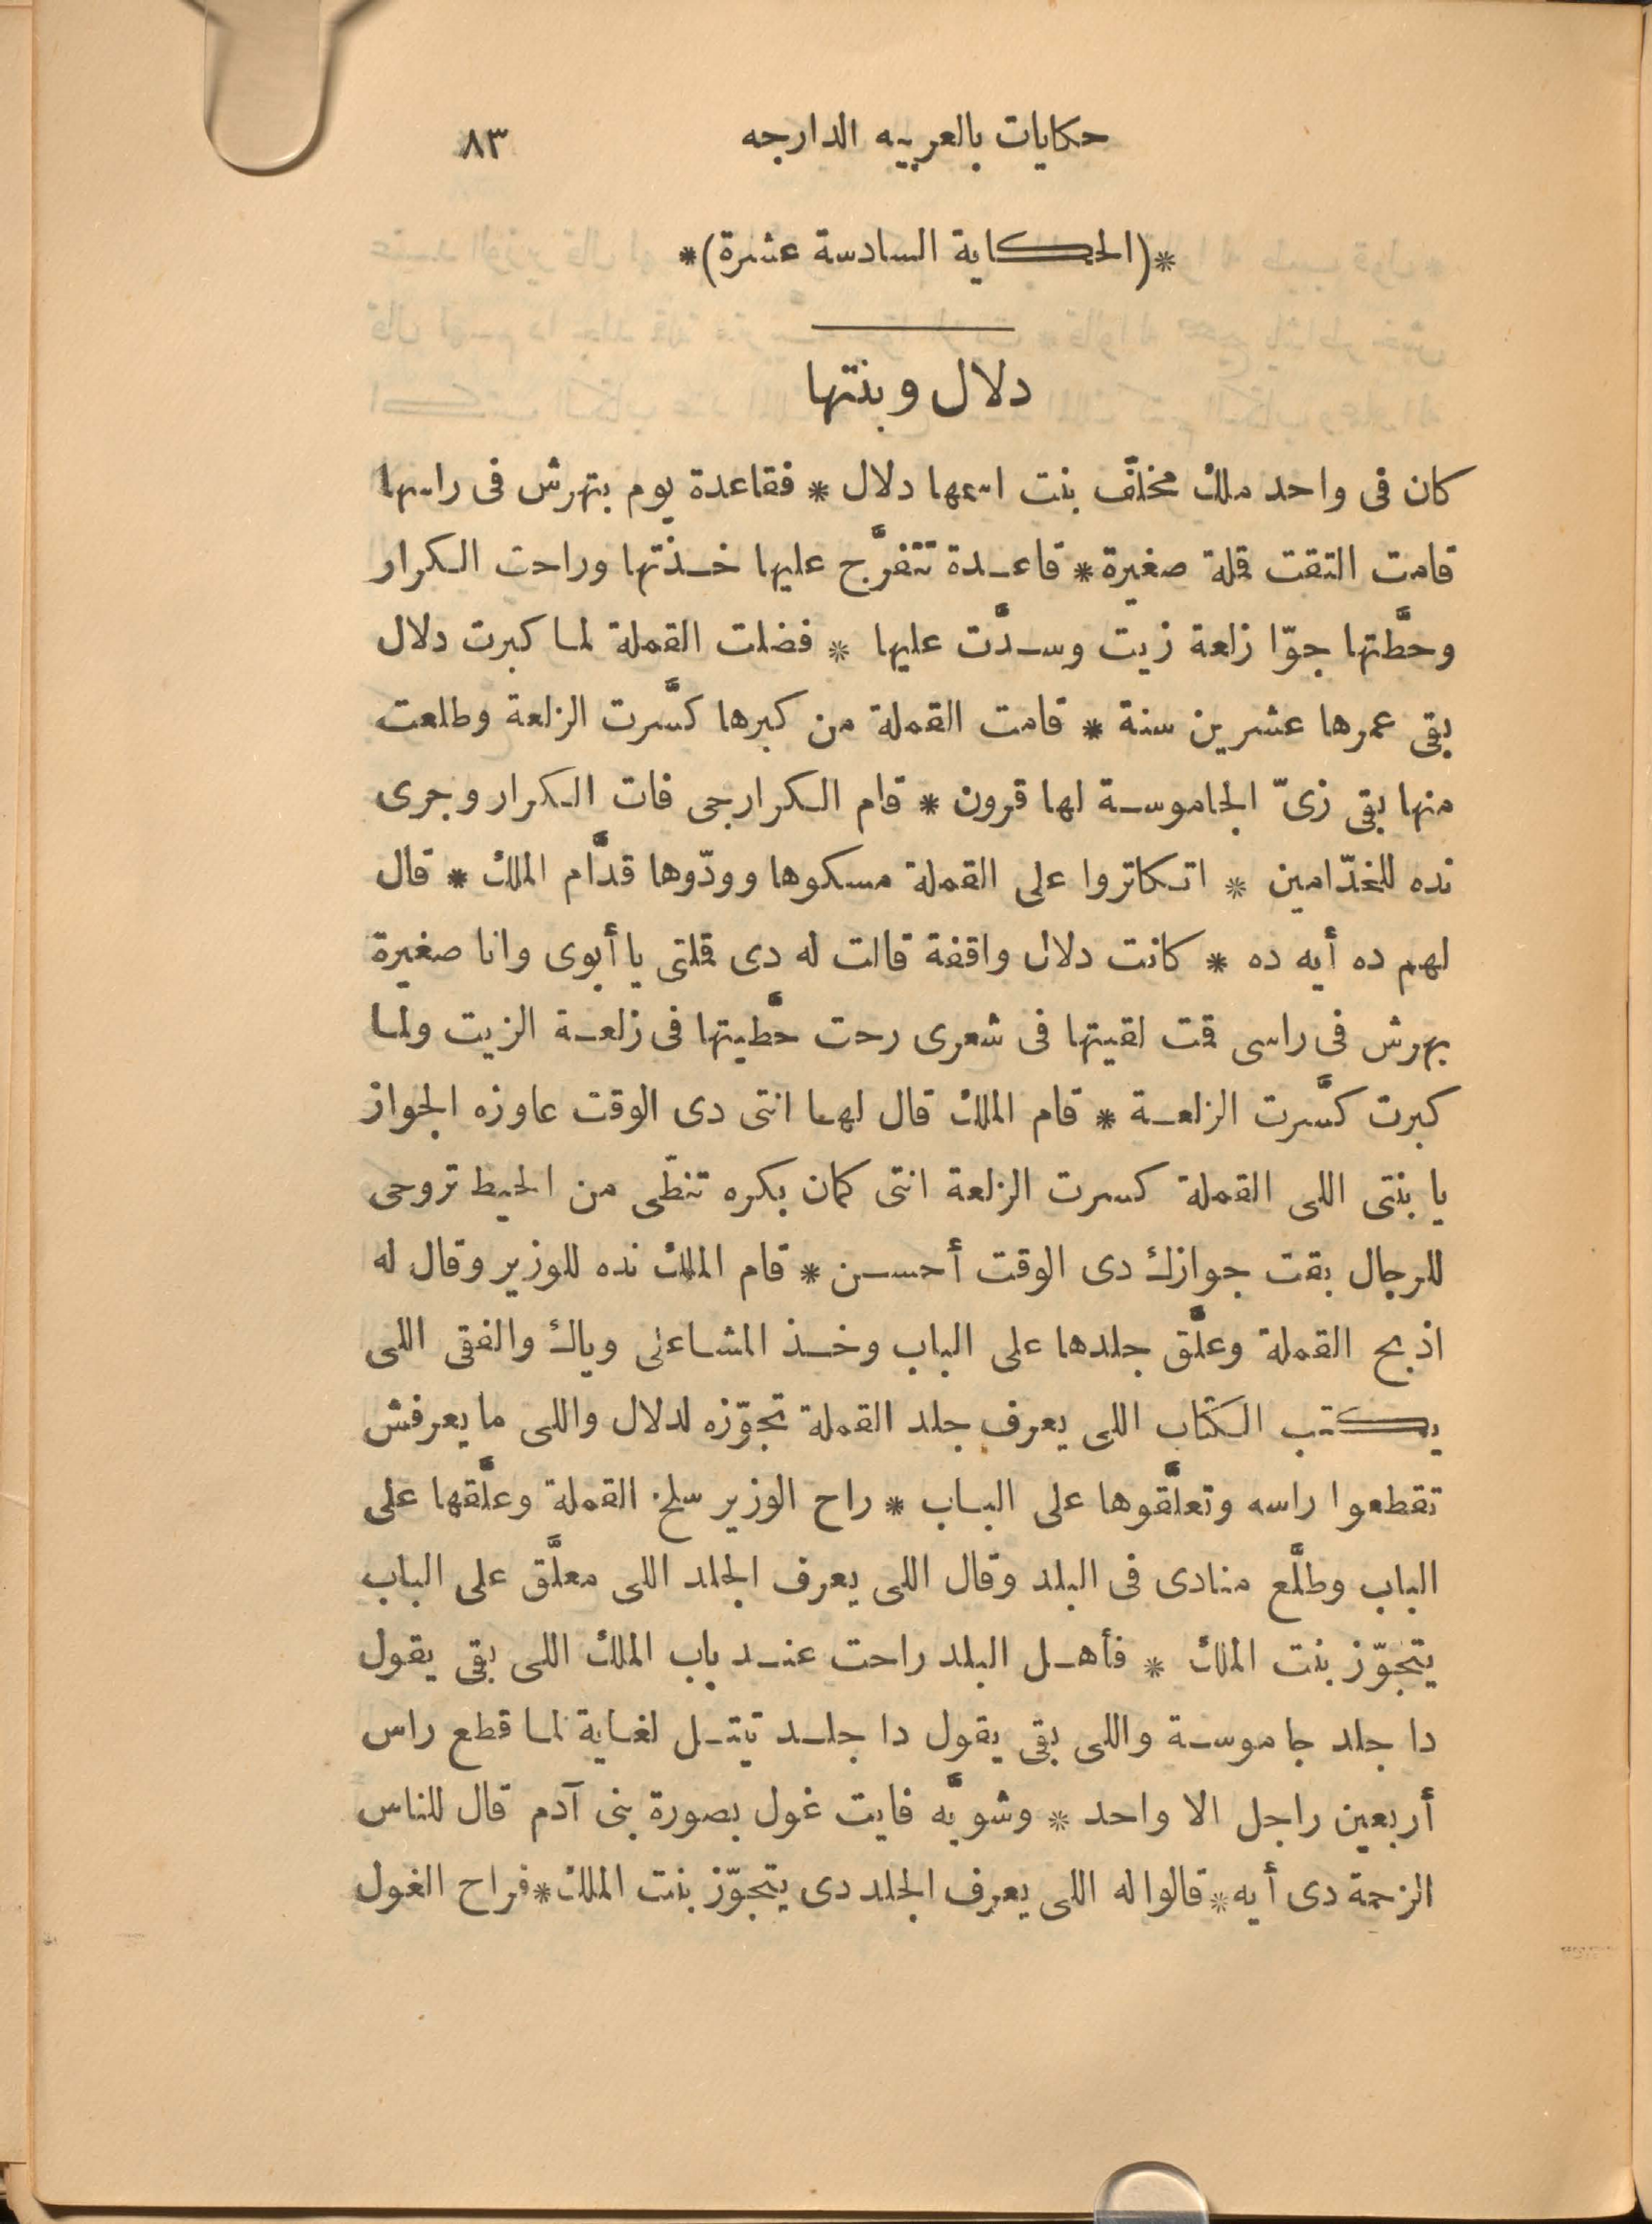 حكايات بالعربيه الدارجه ٨٣
*(الحكاية السادسة عشرة)*
دلال وبنتها
كان فى واحد ملك مخلَّف بنت اسمها دلال * فقاعدة يوم بتهرش فى راسها
قامت التقت قملة صغيرة * قاعدة تتفرَّج عليها خذتها وراحت الكرار
وحطَّتها جوّا زلعة زيت وسدَّت عليها * فضلت القملة لما كبرت دلال
بقى عمرها عشرين سنة * قامت القملة من كبرها كسَّرت الزلعة وطلعت
منها بقى زىّ الجاموسة لها قرون * قام الكرارجى فات الكرار وجرى
نده للخدّامين * اتكاتروا على القملة مسكوها وودّوها قدَّام الملك * قال
لهم ده أيه ده * كانت دلال واقفة قالت له دى قملتى يا أبوى وانا صغيرة
بهرش فى راسى قمت لقيتها فى شعرى رحت حطَّيتها فى زلعة الزيت ولما
كبرت كسَّرت الزلعة * قام الملك قال لها انتى دى الوقت عاوزه الجواز
يا بنتى اللى القملة كسرت الزلعة انتى كمان بكره تنطّى من الحيط تروحى
للرجال بقت جوازك دى الوقت أحسن * قام الملك نده للوزير وقال له
اذبح القملة وعلَّق جلدها على الباب وخذ المشاعلى وياك والفقى اللى
يكتب الكتاب اللى يعرف جلد القملة تجوّزه لدلال واللى ما يعرفش
تقطعوا راسه وتعلَّقوها على الباب * راح الوزير سلخ القملة وعلَّقها على
الباب وطلَّع منادى فى البلد وقال اللى يعرف الجلد اللى معلَّق على الباب
يتجوّز بنت الملك * فأهل البلد راحت عند باب الملك اللى بقى يقول
دا جلد جاموسة واللى بقى يقول دا جلد تيتل لغاية لما قطع راس
أربعين راجل الا واحد * وشويَّه فايت غول بصورة بنى آدم قال للناس
الزحمة دى أيه * قالوا له اللى يعرف الجلد دى يتجوّز بنت الملك * فراح الغول